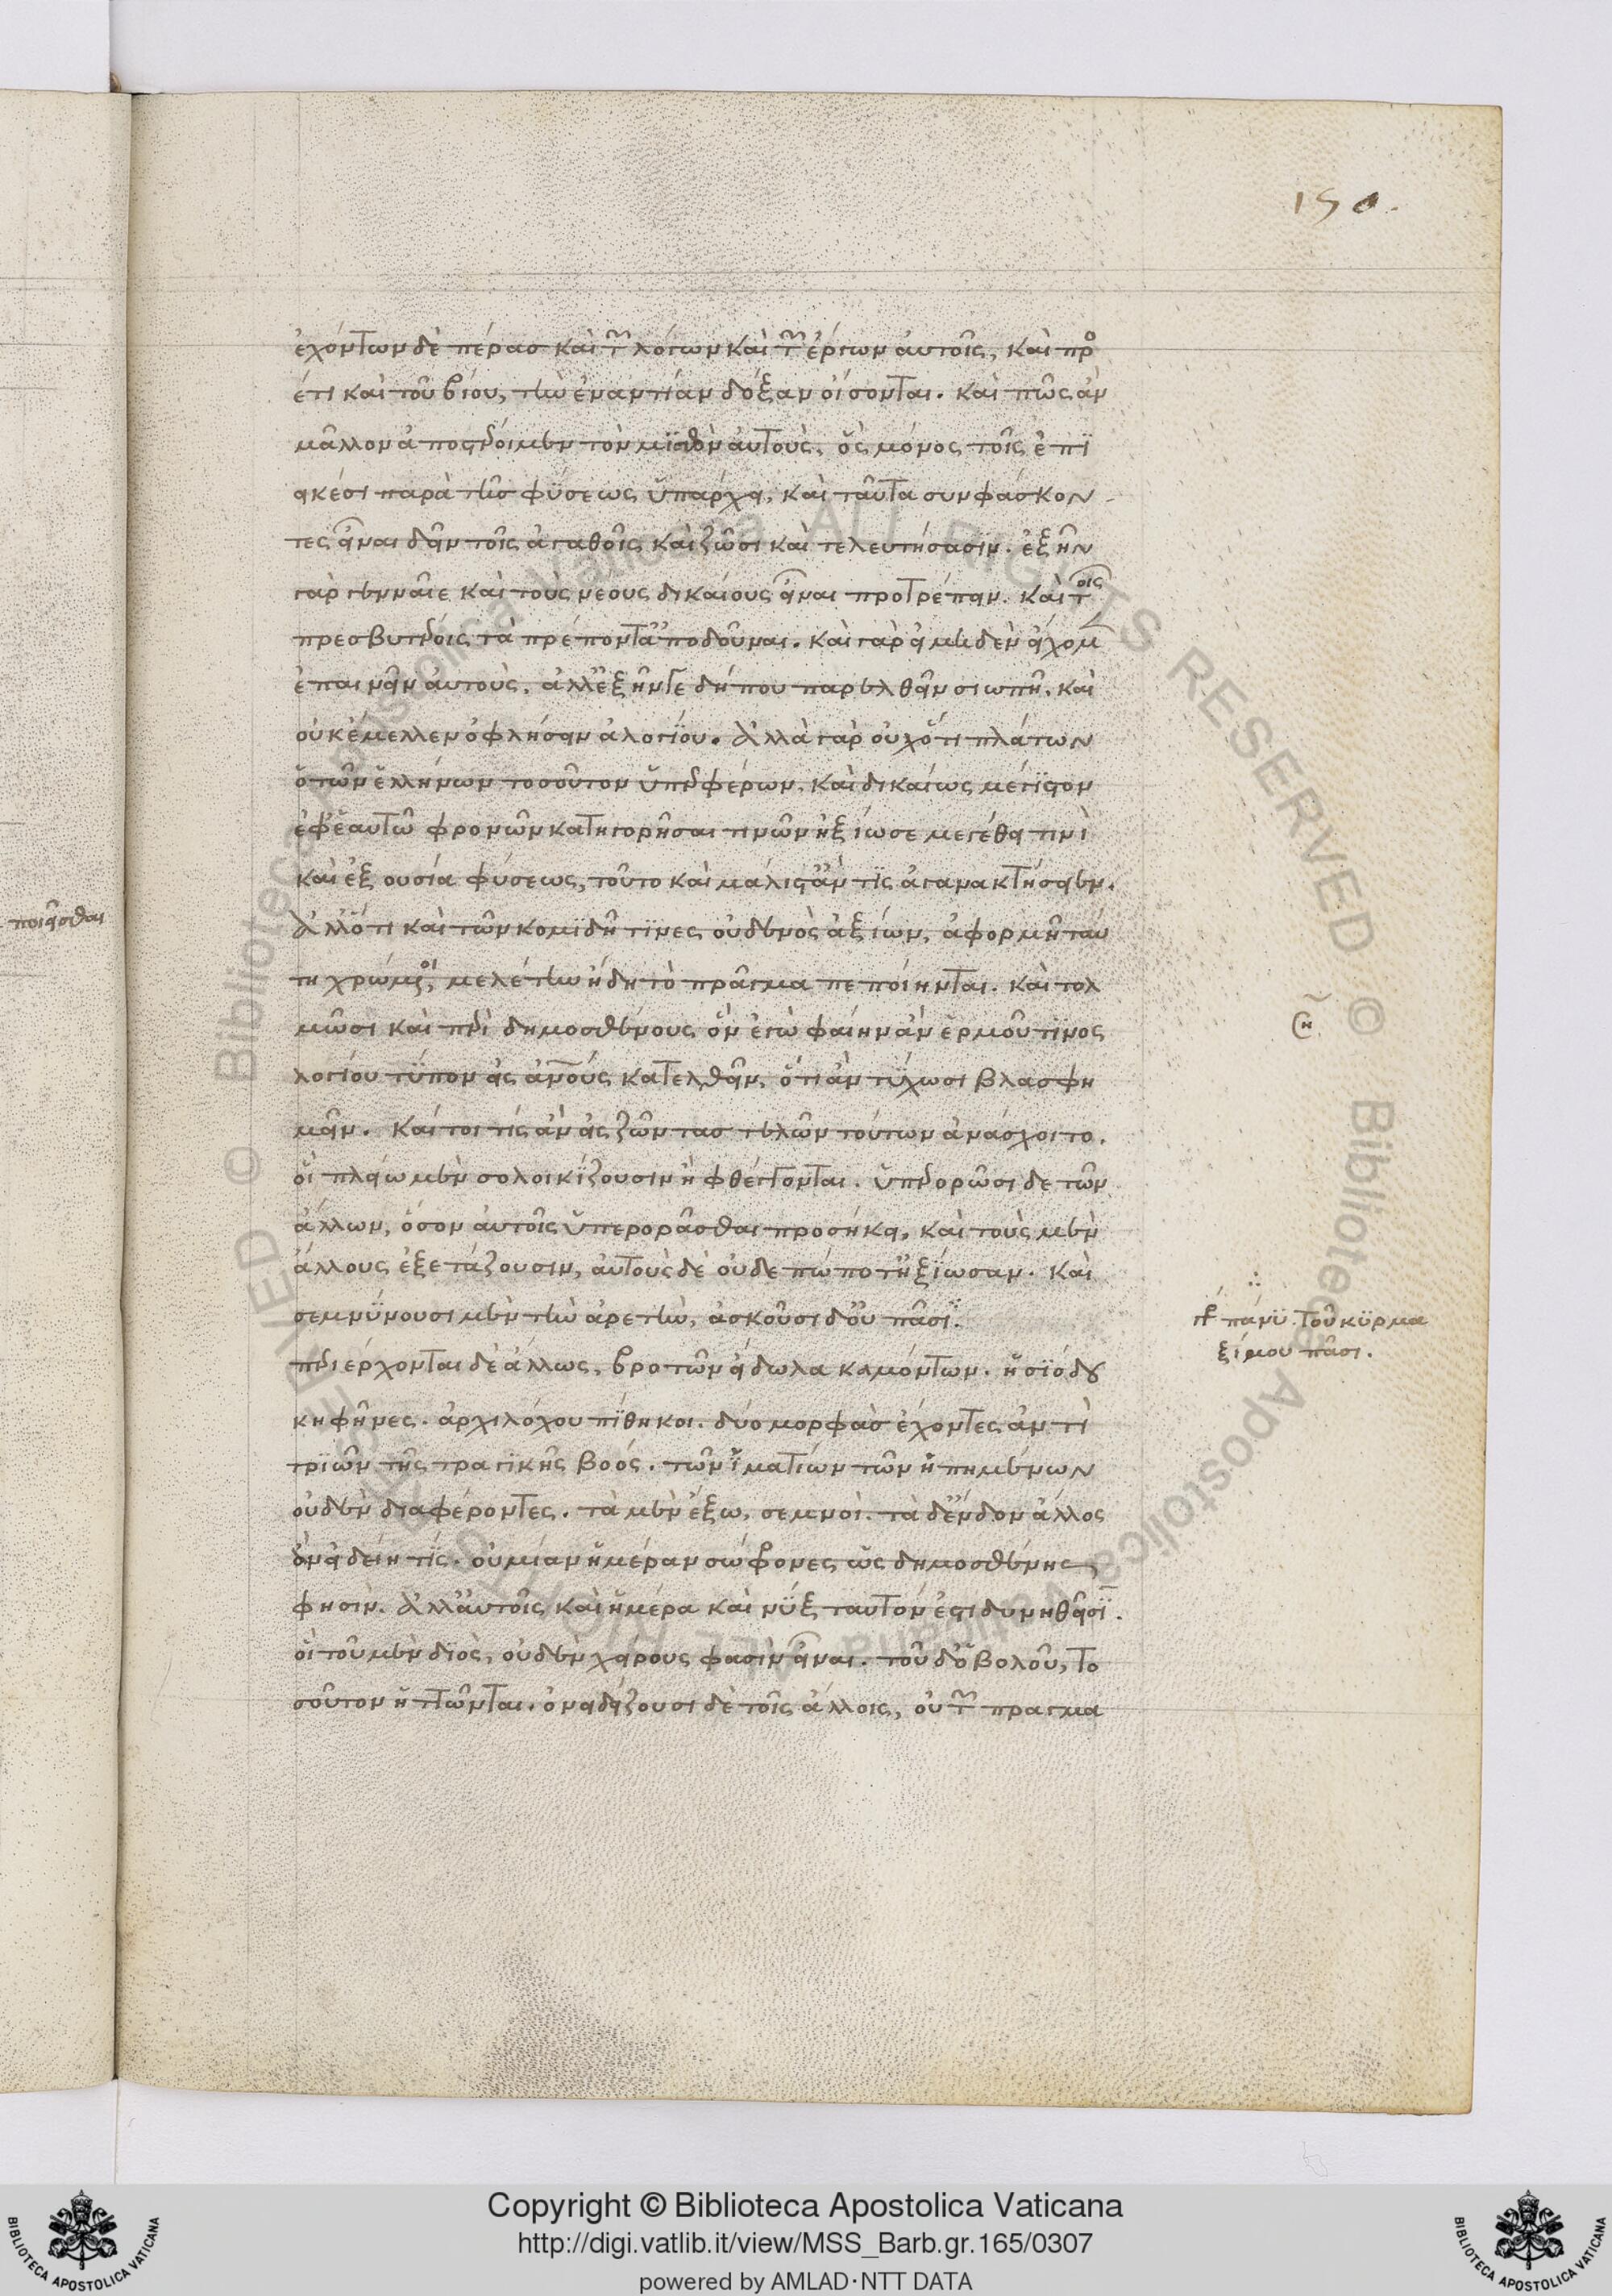 150.
ἐχόντων δὲ πέρας καὶ τῶν λόγων καὶ τῶν ἔργων αὐτοῖς, καὶ πρὸς
ἔτι καὶ τοῦ βίου, τὴν ἐναντίαν δόξαν οἴσονται. καὶ πῶς ἂν
μᾶλλον ἀποστεροῖμεν τὸν μισθὸν αὐτοὺς, ὃς μόνος τοῖς ἐπι
εικέσι παρὰ τῆς φύσεως ὑπάρχει, καὶ ταῦτα συμφάσκον
τες εἶναι δεῖν τοῖς ἀγαθοῖς καὶ ζῶσι καὶ τελευτήσασιν. ἐξῆν
γὰρ γενναῖε καὶ τοὺς νέους δικαίους εἶναι προτρέπειν. καὶ τοῖς
πρεσβυτέροις τὰ πρέποντα ἀποδοῦναι. καὶ γὰρ εἰ μηδὲν εἴχομεν
ἐπαινεῖν αὐτοὺς, ἀλλ' ἐξῆν γε δήπου παρελθεῖν σιωπῇ. καὶ
οὐκ ἔμελλεν ὀφλήσειν ἀλογίου. Ἀλλὰ γὰρ οὐχ ὅτι πλάτων
ὁ τῶν ἑλλήνων τοσοῦτον ὑπερφέρων, καὶ δικαίως μέγιστον
ἐφ' ἑαυτῷ φρονῶν κατηγορῆσαι τινῶν ἠξίωσε μεγέθει τινὶ
καὶ ἐξουσία φύσεως, τοῦτο καὶ μάλιστ' ἄν τις ἀγανακτήσειεν.
Ἀλλ' ὅτι καὶ τῶν κομιδῇ τινες οὐδενὸς ἀξίων, ἀφορμῇ ταύ
τῃ χρώμενοι, μελέτην ἤδη τὸ πρᾶγμα πεποίηνται. καὶ τολ
μῶσι καὶ περὶ δημοσθένους ὃν ἐγὼ φαίην ἂν ἑρμοῦ τινος
λογίου τύπον εἰς ἀνθρώπους κατελθεῖν, ὅτι ἂν τύχωσι βλασφη
μεῖν. Καίτοι τίς ἂν εἰς ζῶντας γελῶν τούτων ἀνάσχοιτο.
οἳ πλείω μὲν σολοικίζουσιν ἢ φθέγγονται. ὑπερορῶσι δε τῶν
ἄλλων, ὅσον αὐτοῖς ὑπερορᾶσθαι προσήκει, καὶ τοὺς μὲν
ἄλλους ἐξετάζουσιν, αὐτοὺς δὲ οὐδεπώποτ' ἠξίωσαν. Καὶ
σεμνύνουσι μὲν τὴν ἀρετὴν, ἀσκοῦσι δ' οὐ πᾶσι.
περιέρχονται δὲ ἄλλως, βροτῶν εἴδωλα καμόντων. ἡσιόδου
κηφῆνες. ἀρχιλόχου πίθηκοι. δύο μορφὰς ἔχοντες ἀντὶ
τριῶν τῆς τραγικῆς βοός. τῶν ἱματίων τῶν ἠπημένων
οὐδὲν διαφέροντες. τὰ μὲν ἔξω, σεμνοὶ. τὰ δ' ἔνδον ἄλλος
ἂν εἰδείη τίς. οὐ μίαν ἡμέραν σώφρονες ὡς δημοσθένης
φησὶν. Ἀλλ' αὐτοῖς καὶ ἡμέρα καὶ νὺξ ταυτόν ἐστι δυνηθεῖσι.
οἳ τοῦ μὲν διὸς, οὐδὲν χείρους φασὶν εἶναι. τοῦ δ' ὀβολοῦ, το
σοῦτον ἡττῶνται. ὀνειδίζουσι δὲ τοῖς ἄλλοις, οὐ τῶν πραγμά
ποιεῖσθαι
πάνυ. Τοῦ κὺρ μα
ξίμου πᾶσι.
Copyright © Biblioteca Apostolica Vaticana
http://digi.vatlib.it/view/MSS_Barb.gr.165/0307
powered by AMLAD·NTT DATA